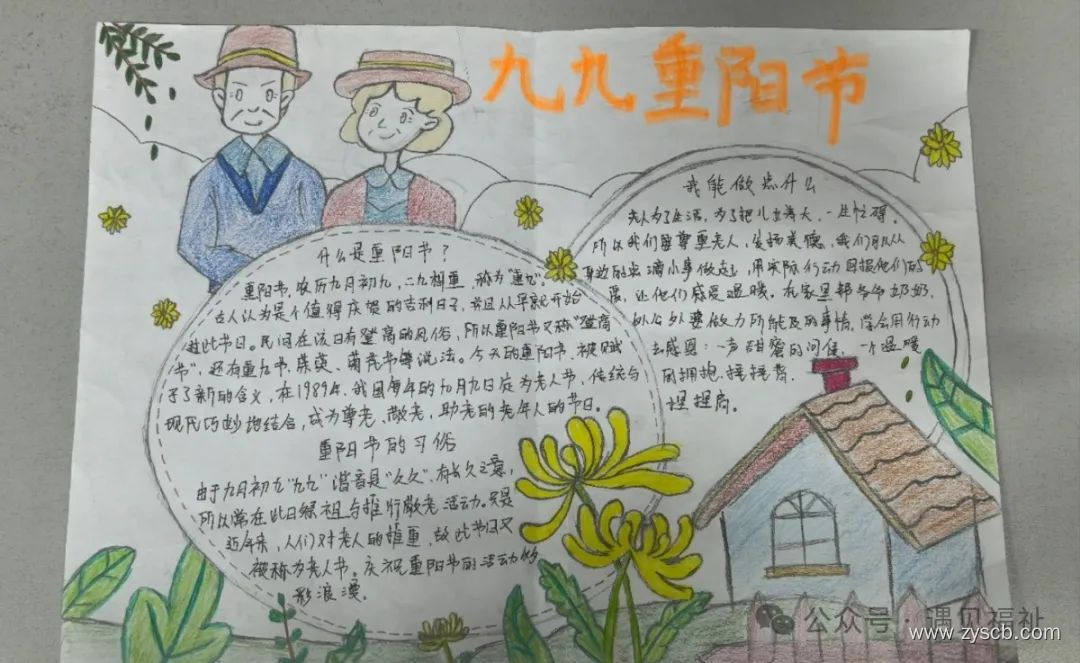 九九重阳节
什么是重阳节?
重阳节,农历九月初九,二九相重,称为"重九"。
古人认为是个值得庆贺的吉利日子,并且从早就开始
过此节日。民间在该日有登高的风俗,所以重阳节又称"登高
节",还有重九节、茱萸、菊花节等说法。今天的重阳节,被赋
予了新的含义,在1989年,我国每年的九月九日定为老人节,传统与
现代巧妙地结合,成为尊老、敬老,助老的老年人的节日。
重阳节的习俗
由于九月初九"九九"谐音是"久久",有长久之意,
所以常在此日祭祖与推行敬老活动。
近年来,人们对老人的 重,故此节日又
被称为老人节。庆祝重阳节的活动
彩浪漫。
我能做点什么
老人为了生活,为了把儿女养大,一生忙碌。
所以我们要尊重老人,发扬美德,我们可以从
身边的点滴小事做起,用实际行动回报他们的
爱,让他们感受温暖。在家里帮爷爷奶奶、
外公外婆做力所能及的事情,学会用行动
去感恩:一声甜蜜的问候,一个温暖
的拥抱,捶捶背,
捏捏肩。
公众号·遇见福祉
www.zyscb.com